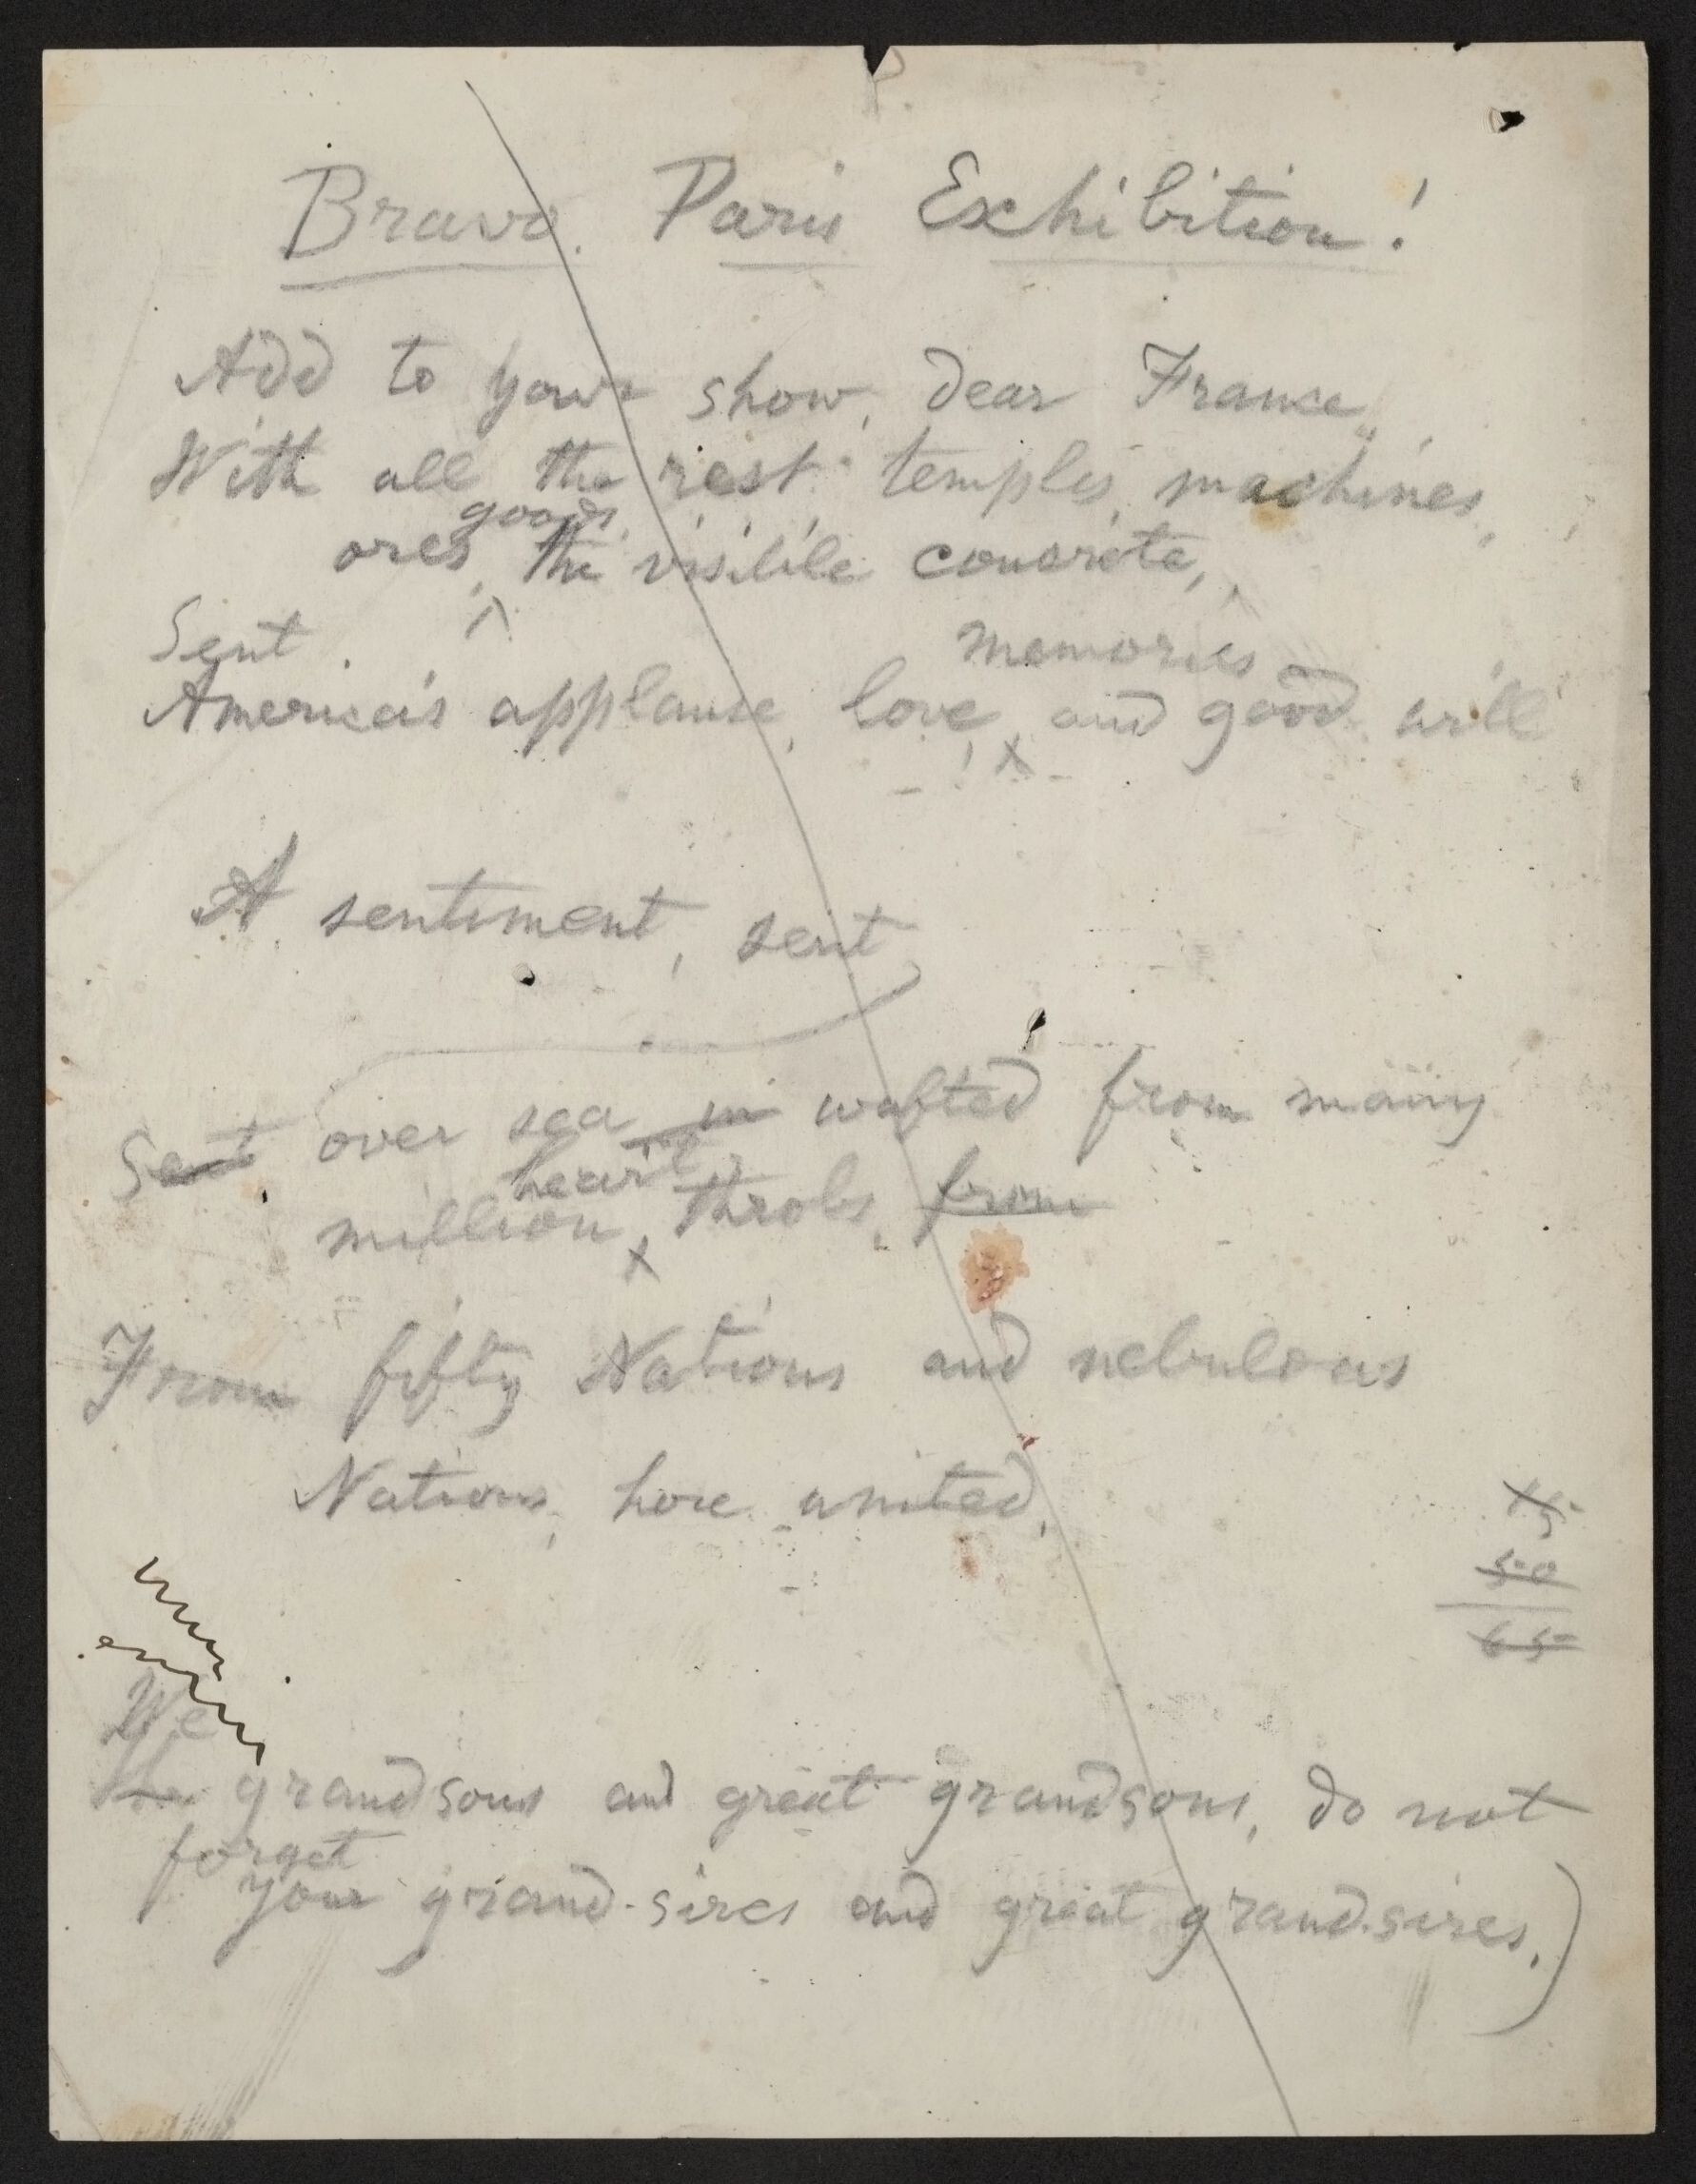 Bravo. Paris Exhibition!
Add to your show, dear France,
With all the rest temples, machines,
goods,
ores, the visible concrete,
Sent
memories
America's applause, love, and good will
A sentiment, sent
Sent over sea in wafted from many
heart
million throbs, from
From fifty Nations and nebulous
Nations, here united,
15
50
65
We
the grandsons and great grandsons, do not
forget
your grand-sires and great grand-sires.)